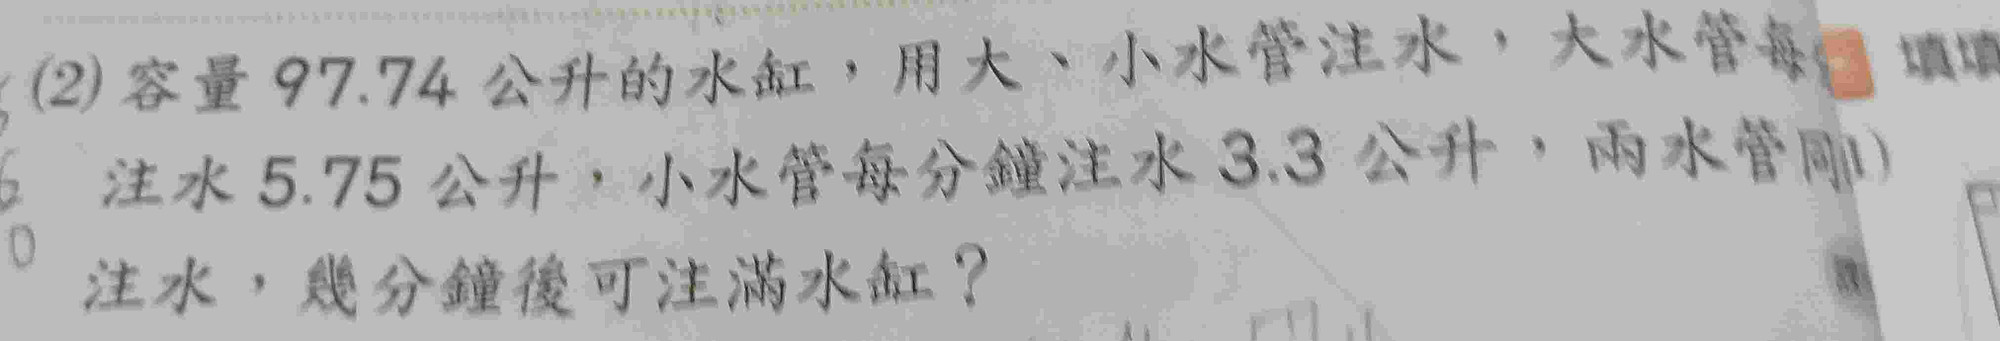 (2) 容量 97.74 公升的水缸，用大、小水管注水，大水管每
注水 5.75 公升，小水管每分鐘注水 3.3 公升，兩水管
注水，幾分鐘後可注滿水缸？
填填
1)
0